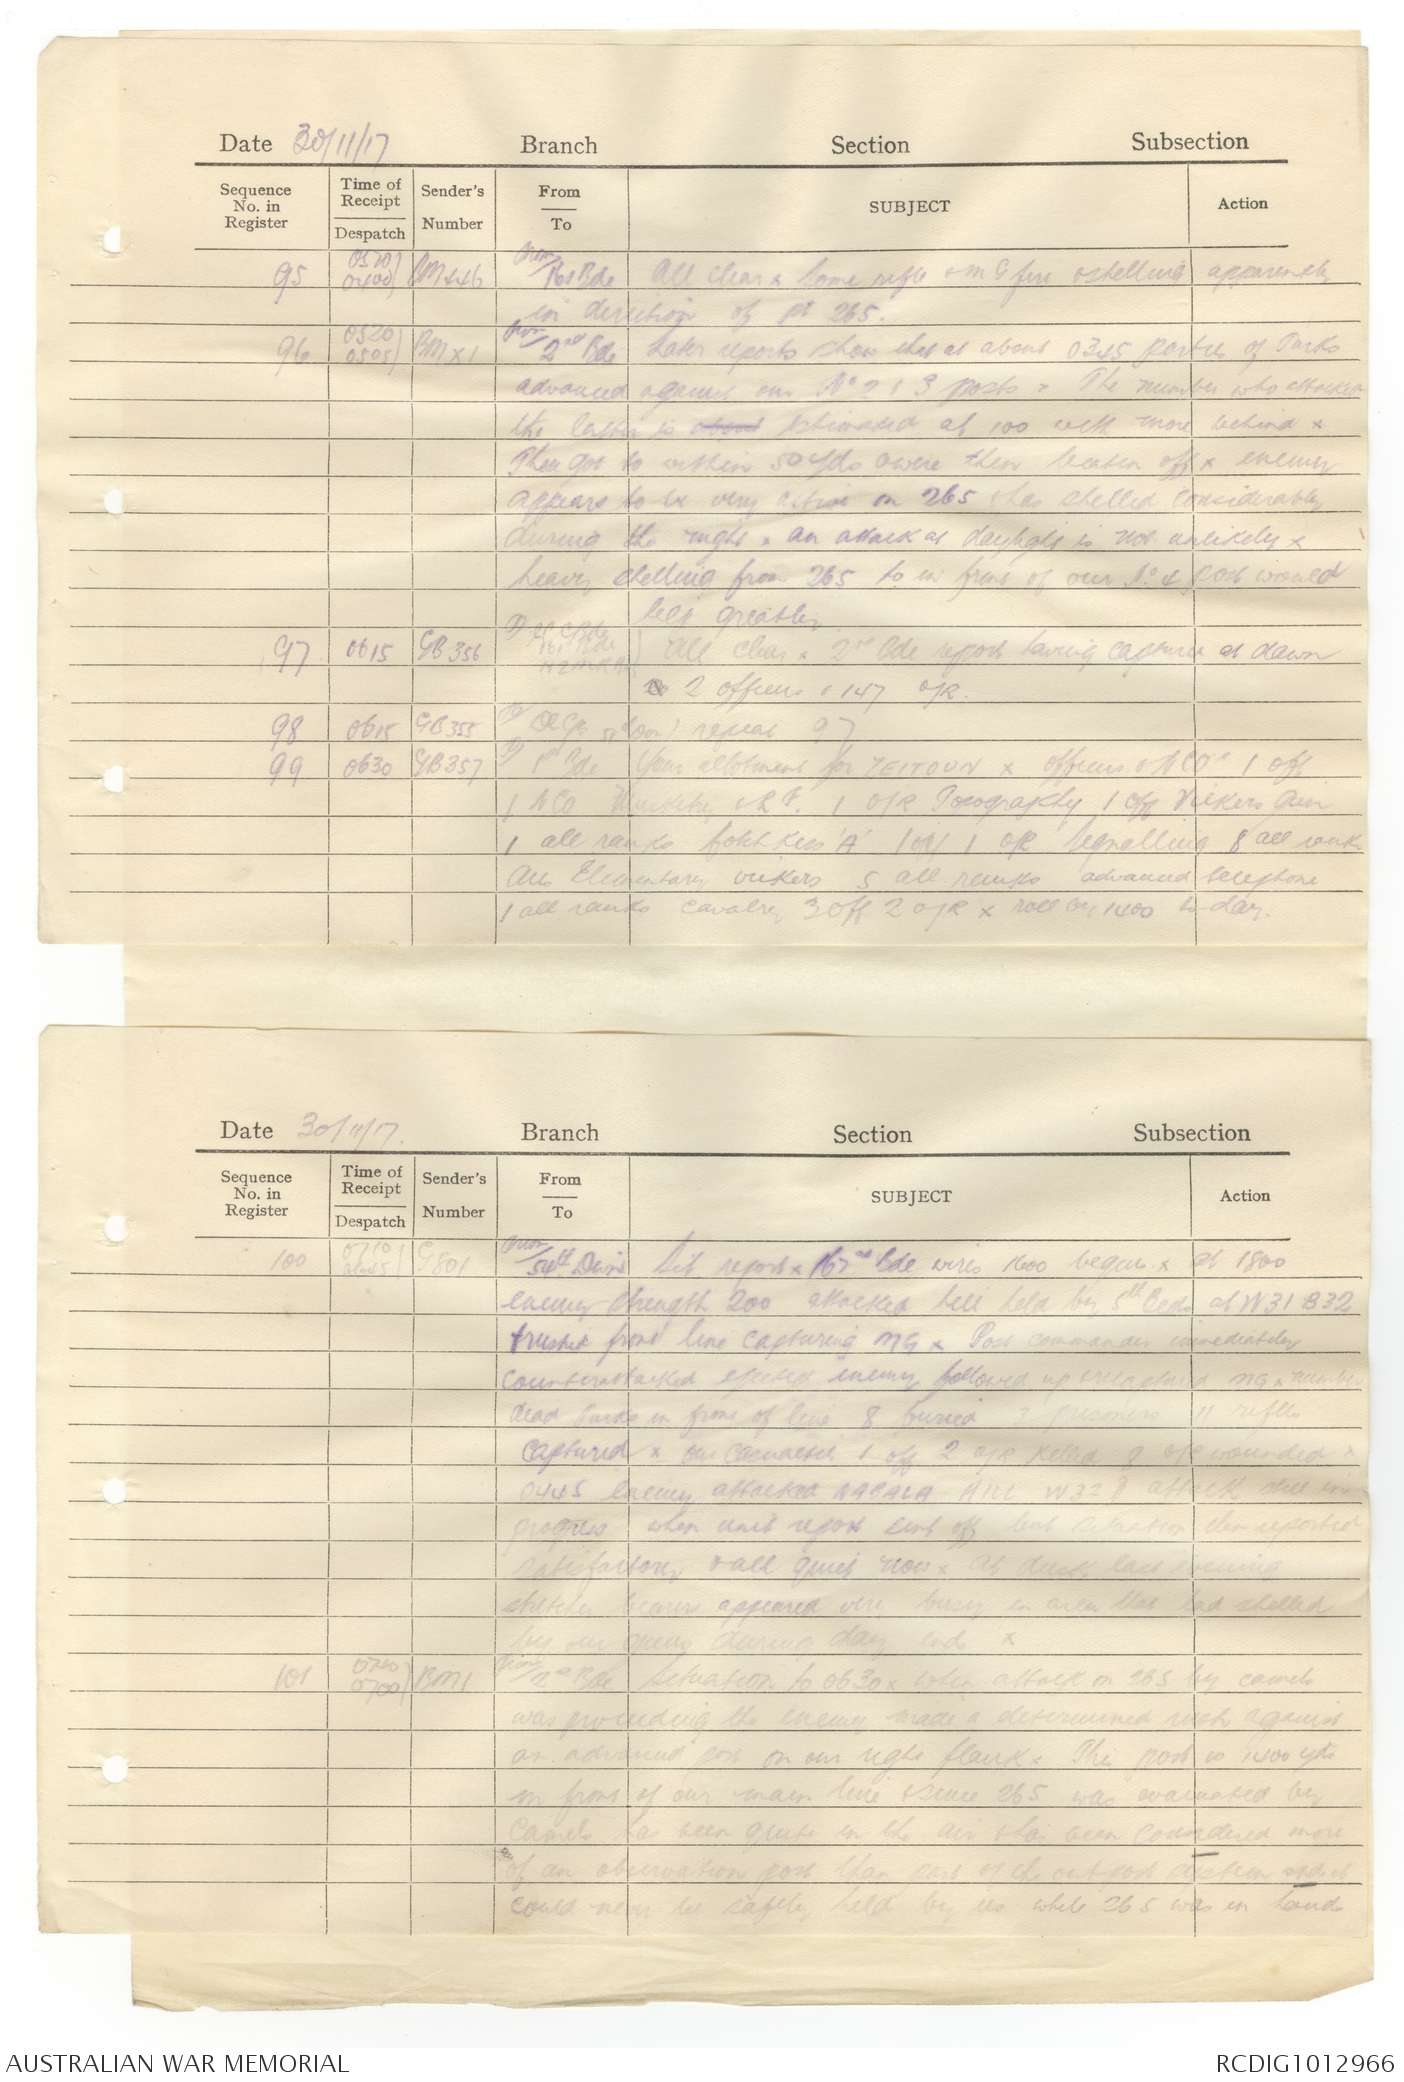 Date 30/11/17 Branch Section Subsection
Sequence No. in Register Time of Receipt Despatch Sender's Number From To SUBJECT Action
95 0520 0400 BM446 From 161 Bde All clear x Some rifle & MG fire & shelling apparently
in direction of pt 265.
96 0520 0505 BMX1 From 2nd Bde Later reports show that at about 0345 parties of Turks
advanced against our No 2 & 3 posts x The number who attacked
the latter is about estimated at 100 with more behind x
They got to within 50 yds & were then beaten off x enemy
appears to be very active on 265 & has shelled considerably
during the night x an attack at daylight is not unlikely x
heavy shelling from 265 to in front of our No 4 post would
help greatly
97 0615 GB356 To 161 Bde NZMR All clear x 2nd Bde report having captured at dawn
2 officers & 147 O/R.
98 0615 GB355 To repeat 97
99 0630 GB357 To 1st Bde Your allotment for ZEITOUN x officers & NCOs 1 off
1 NCO Musketry 1 O/R Topography 1 Off Vickers Gun
1 all ranks Hotchkiss 'A' 1 off 1 O/R Signalling 8 all ranks
Elementary Vickers 5 all ranks advanced telephone
1 all ranks cavalry 3 Off 2 O/R x roll by 1400 to-day.
Date 30/11/17. Branch Section Subsection
Sequence No. in Register Time of Receipt Despatch Sender's Number From To SUBJECT Action
100 0710 0645 G801 From 54th Divn Sit report x 162nd Bde wires 1600 begins x at 1800
enemy strength 200 attacked hill held by 5th Beds at W31 B32
front line capturing MG x Post commander immediately
counterattacked ejected enemy followed up & recaptured MG x number
dead Turks in front of line 8 buried 3 prisoners 11 rifles
captured x our casualties 1 off 2 O/R killed 9 O/R wounded x
0445 enemy attacked Hill attack still in
progress when unit report sent off but situation then reported
satisfactory & all quiet now x at dusk last evening
stretcher bearers appeared very busy in area that had shelled
by our guns during day ends x
101 0700 BM1 From 2nd Bde Situation to 0630 x when attack on 265 by camels
was proceeding the enemy made a determined rush against
an advanced post on our right flank x The post is 1400 yds
in front of our main line & since 265 was evacuated by
Camels has been quite in the air & has been considered more
of an observation post than part of the outpost
could never be safely held by us while 265 was in hands
AUSTRALIAN WAR MEMORIAL RCDIG1012966